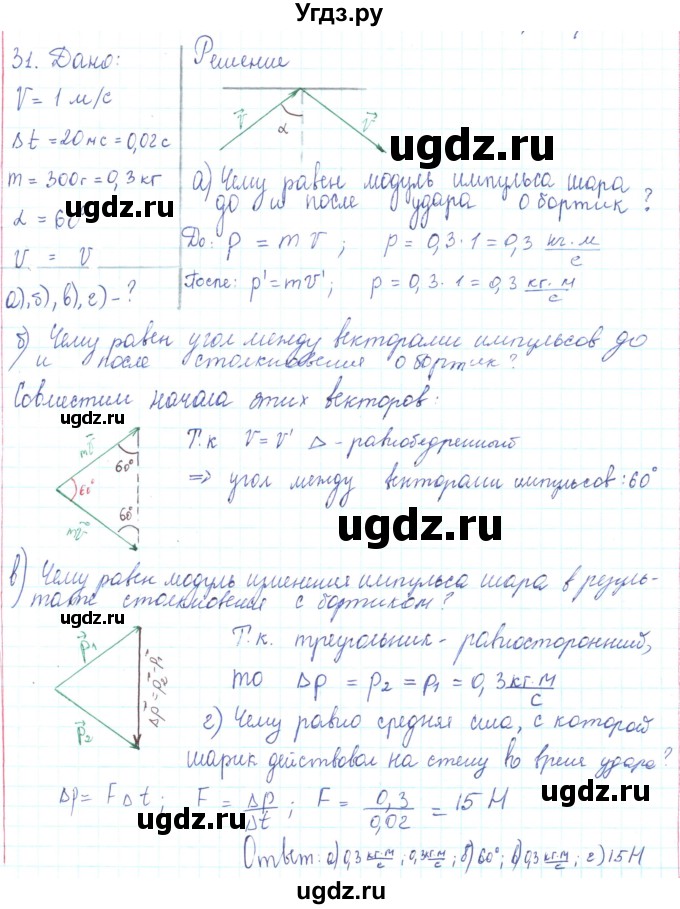 Угдз.ру
31. Дано:
V = 1 м/с
Δt = 20мс = 0,02с
m = 300г = 0,3 кг
α = 60
V = V
а), б), в), г) - ?
Решение
V⃗ α V⃗
ugdz.ru
а) Чему равен модуль импульса шара
до и после удара о бортик?
До: p = mV; p = 0,3·1 = 0,3 кг·м/с
После: p' = mV'; p = 0,3·1 = 0,3 кг·м/с
ugdz.ru
б) Чему равен угол между векторами импульсов до
и после столкновения о бортик?
ugdz.ru
Совместим начала этих векторов:
ugdz.ru
mV⃗ 60° 60° 60° mV⃗
Т.к V = V' Δ - равнобедренный
=> угол между векторами импульсов: 60°
ugdz.ru
ugdz.ru
в) Чему равен модуль изменения импульса шара в резуль-
тате столкновения с бортиком?
ugdz.ru
p⃗1 p⃗2 Δp⃗ = p⃗2 - p⃗1
Т.к. треугольник - равносторонний,
то Δp = p2 = p1 = 0,3 кг·м/с
ugdz.ru
г) Чему равно средняя сила, с которой
шарик действовал на стену во время удара?
ugdz.ru
Δp = FΔt; F = Δp/Δt; F = 0,3/0,02 = 15 Н
ugdz.ru
ugdz.ru
Ответ: а) 0,3 кг·м/с; 0,3 кг·м/с; б) 60°; в) 0,3 кг·м/с; г) 15Н
ugdz.ru